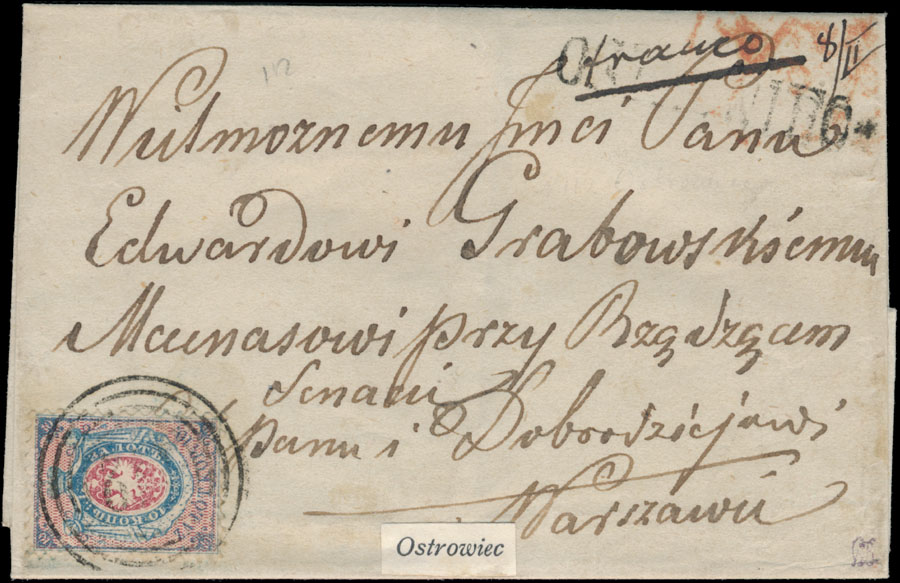 franco 8/II
Wielmożnemu Jmci Panu
Edwardowi Grabowskiemu
Mecenasowi przy Rządzącem
Senacie
Panu i Dobrodziejowi
Warszawie
ЗА ЛОТЪ
10 КОП.
Ostrowiec